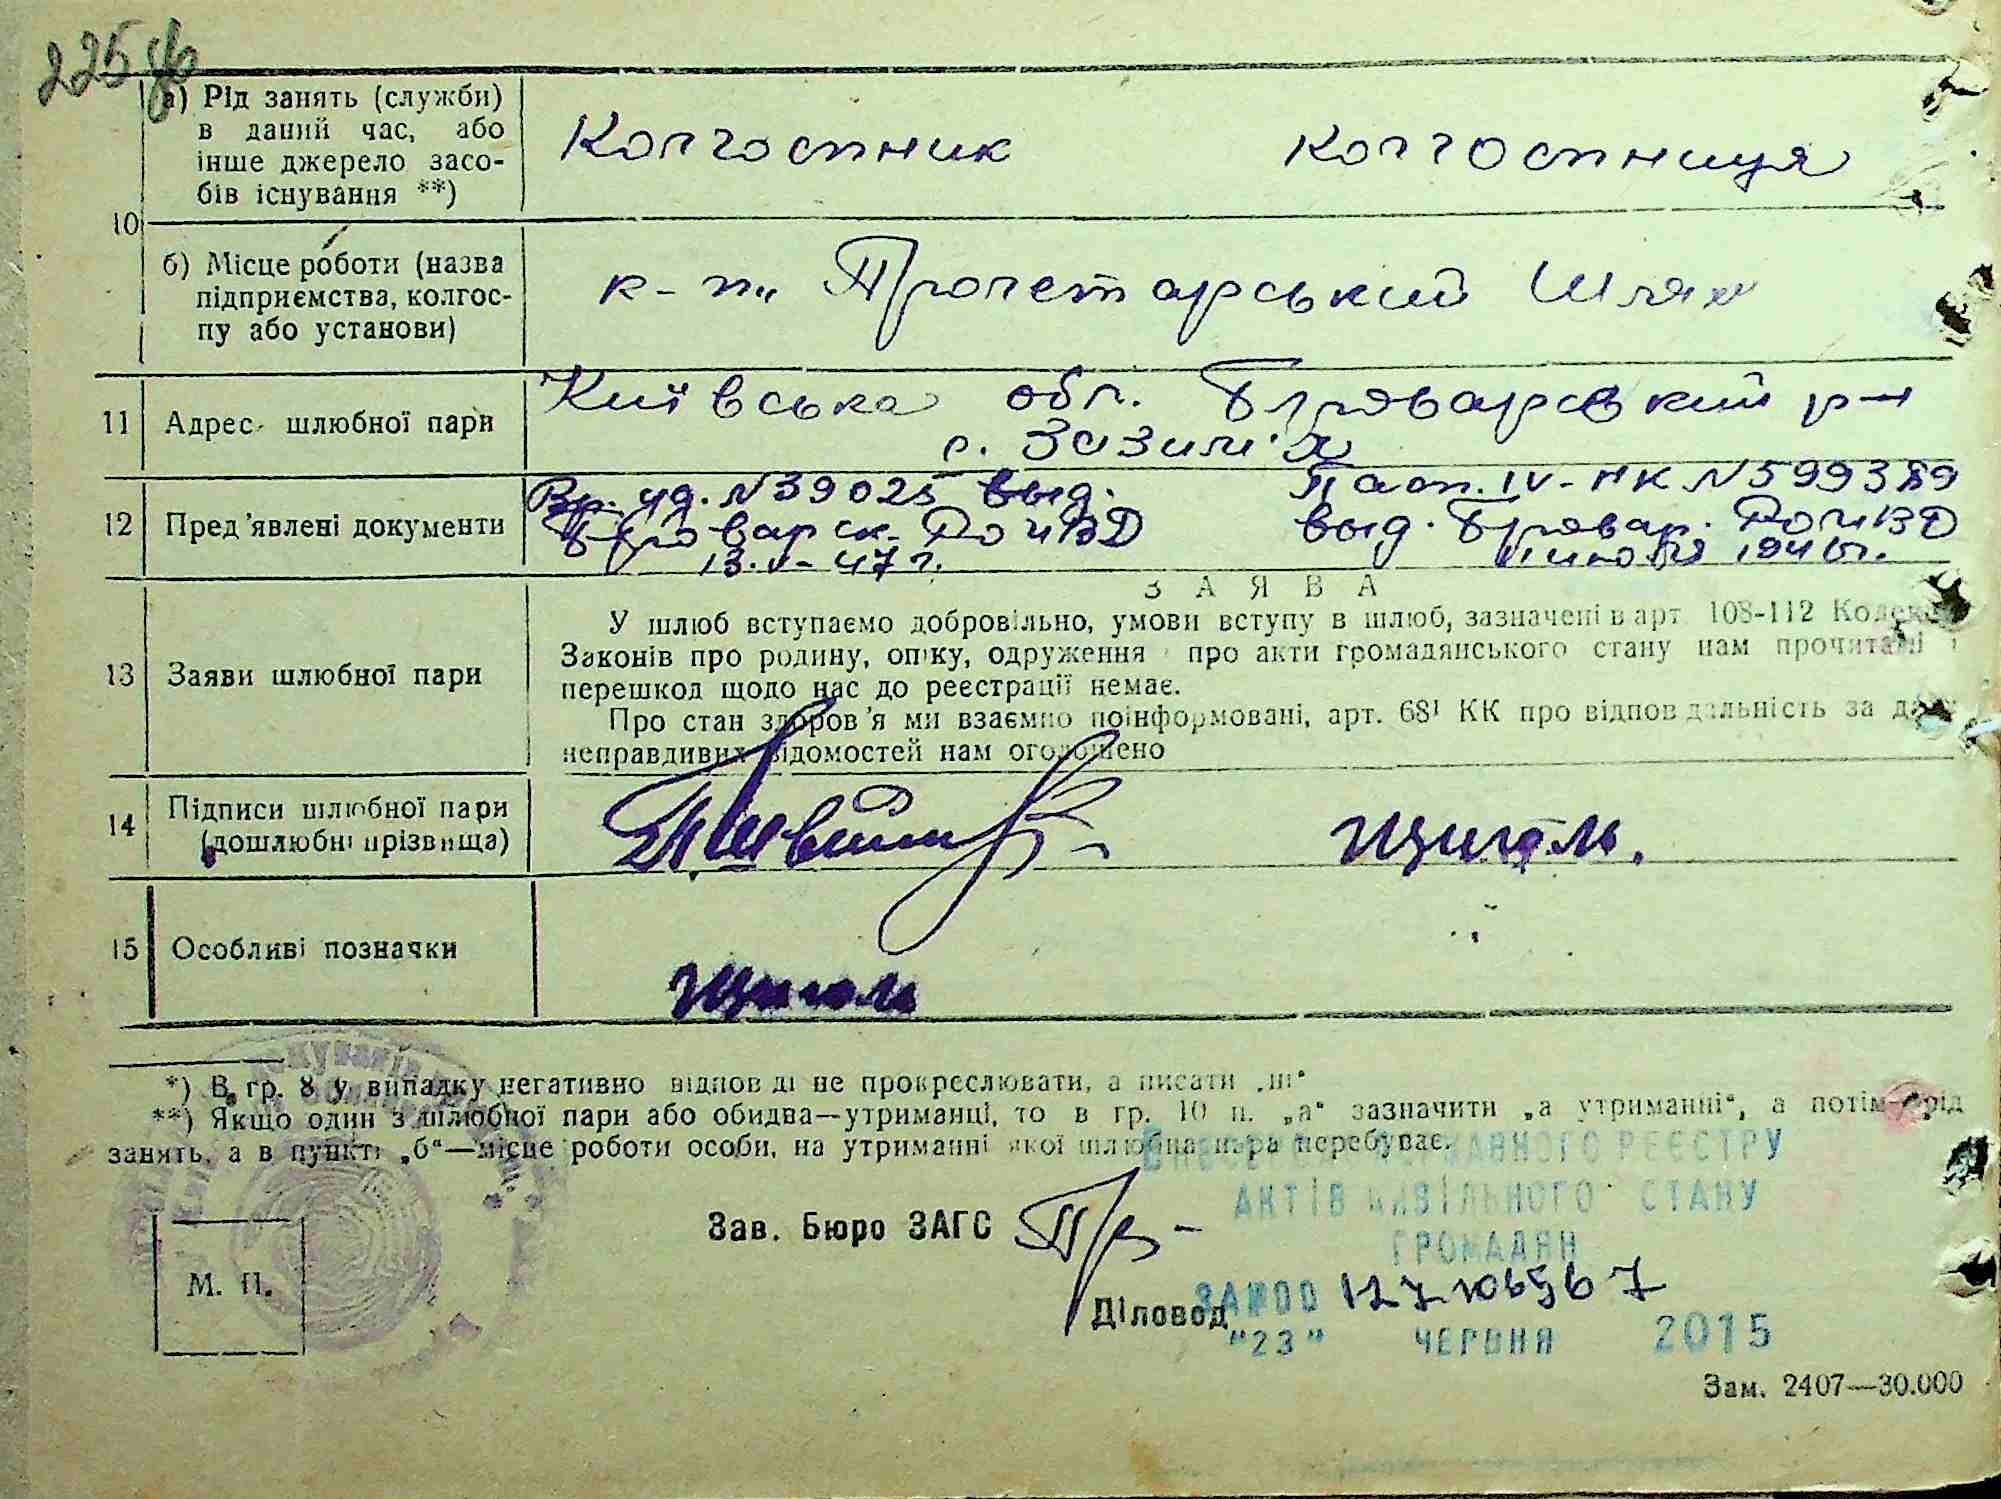 225
а) Рід занять (служби) в даний час, або інше джерело засобів існування **)
Колгоспник колгоспниця
10
б) Місце роботи (назва підприємства, колгоспу або установи)
к-п„ Пролетарський Шлях
11 Адрес шлюбної пари
Київська обл. Броварський р-н
с. Зазим'я
12 Пред'явлені документи
Вр. уд. № 39025 выд. Пасп. IV-НК № 599389
Броварск. РОМВД выд. Бровар. РОМВД
13.V-47 г. 1946 г.
З А Я В А
13 Заяви шлюбної пари
У шлюб вступаємо добровільно, умови вступу в шлюб, зазначені в арт 108-112 Кодексу
Законів про родину, опіку, одруження і про акти громадянського стану нам прочитані і
перешкод щодо нас до реєстрації немає.
Про стан здоров'я ми взаємно поінформовані, арт. 68¹ КК про відповідальність за дачу
неправдивих відомостей нам оголошено
14 Підписи шлюбної пари
(дошлюбні прізвища)
Щиголь.
15 Особливі позначки
Щиголь
*) В гр. 8 у випадку негативно відповіді не прокреслювати, а писати „ні"
**) Якщо один з шлюбної пари або обидва—утриманці, то в гр. 10 п. „а" зазначити „а утриманні", а потім рід
занять, а в пункті „б"—місце роботи особи, на утриманні якої шлюбна пара перебуває.
ДЕРЖАВНОГО РЕЄСТРУ
АКТІВ ЦИВІЛЬНОГО СТАНУ
ГРОМАДЯН
Зав. Бюро ЗАГС
М. П.
Діловод
"23" ЧЕРВНЯ 2015
Зам. 2407—30.000